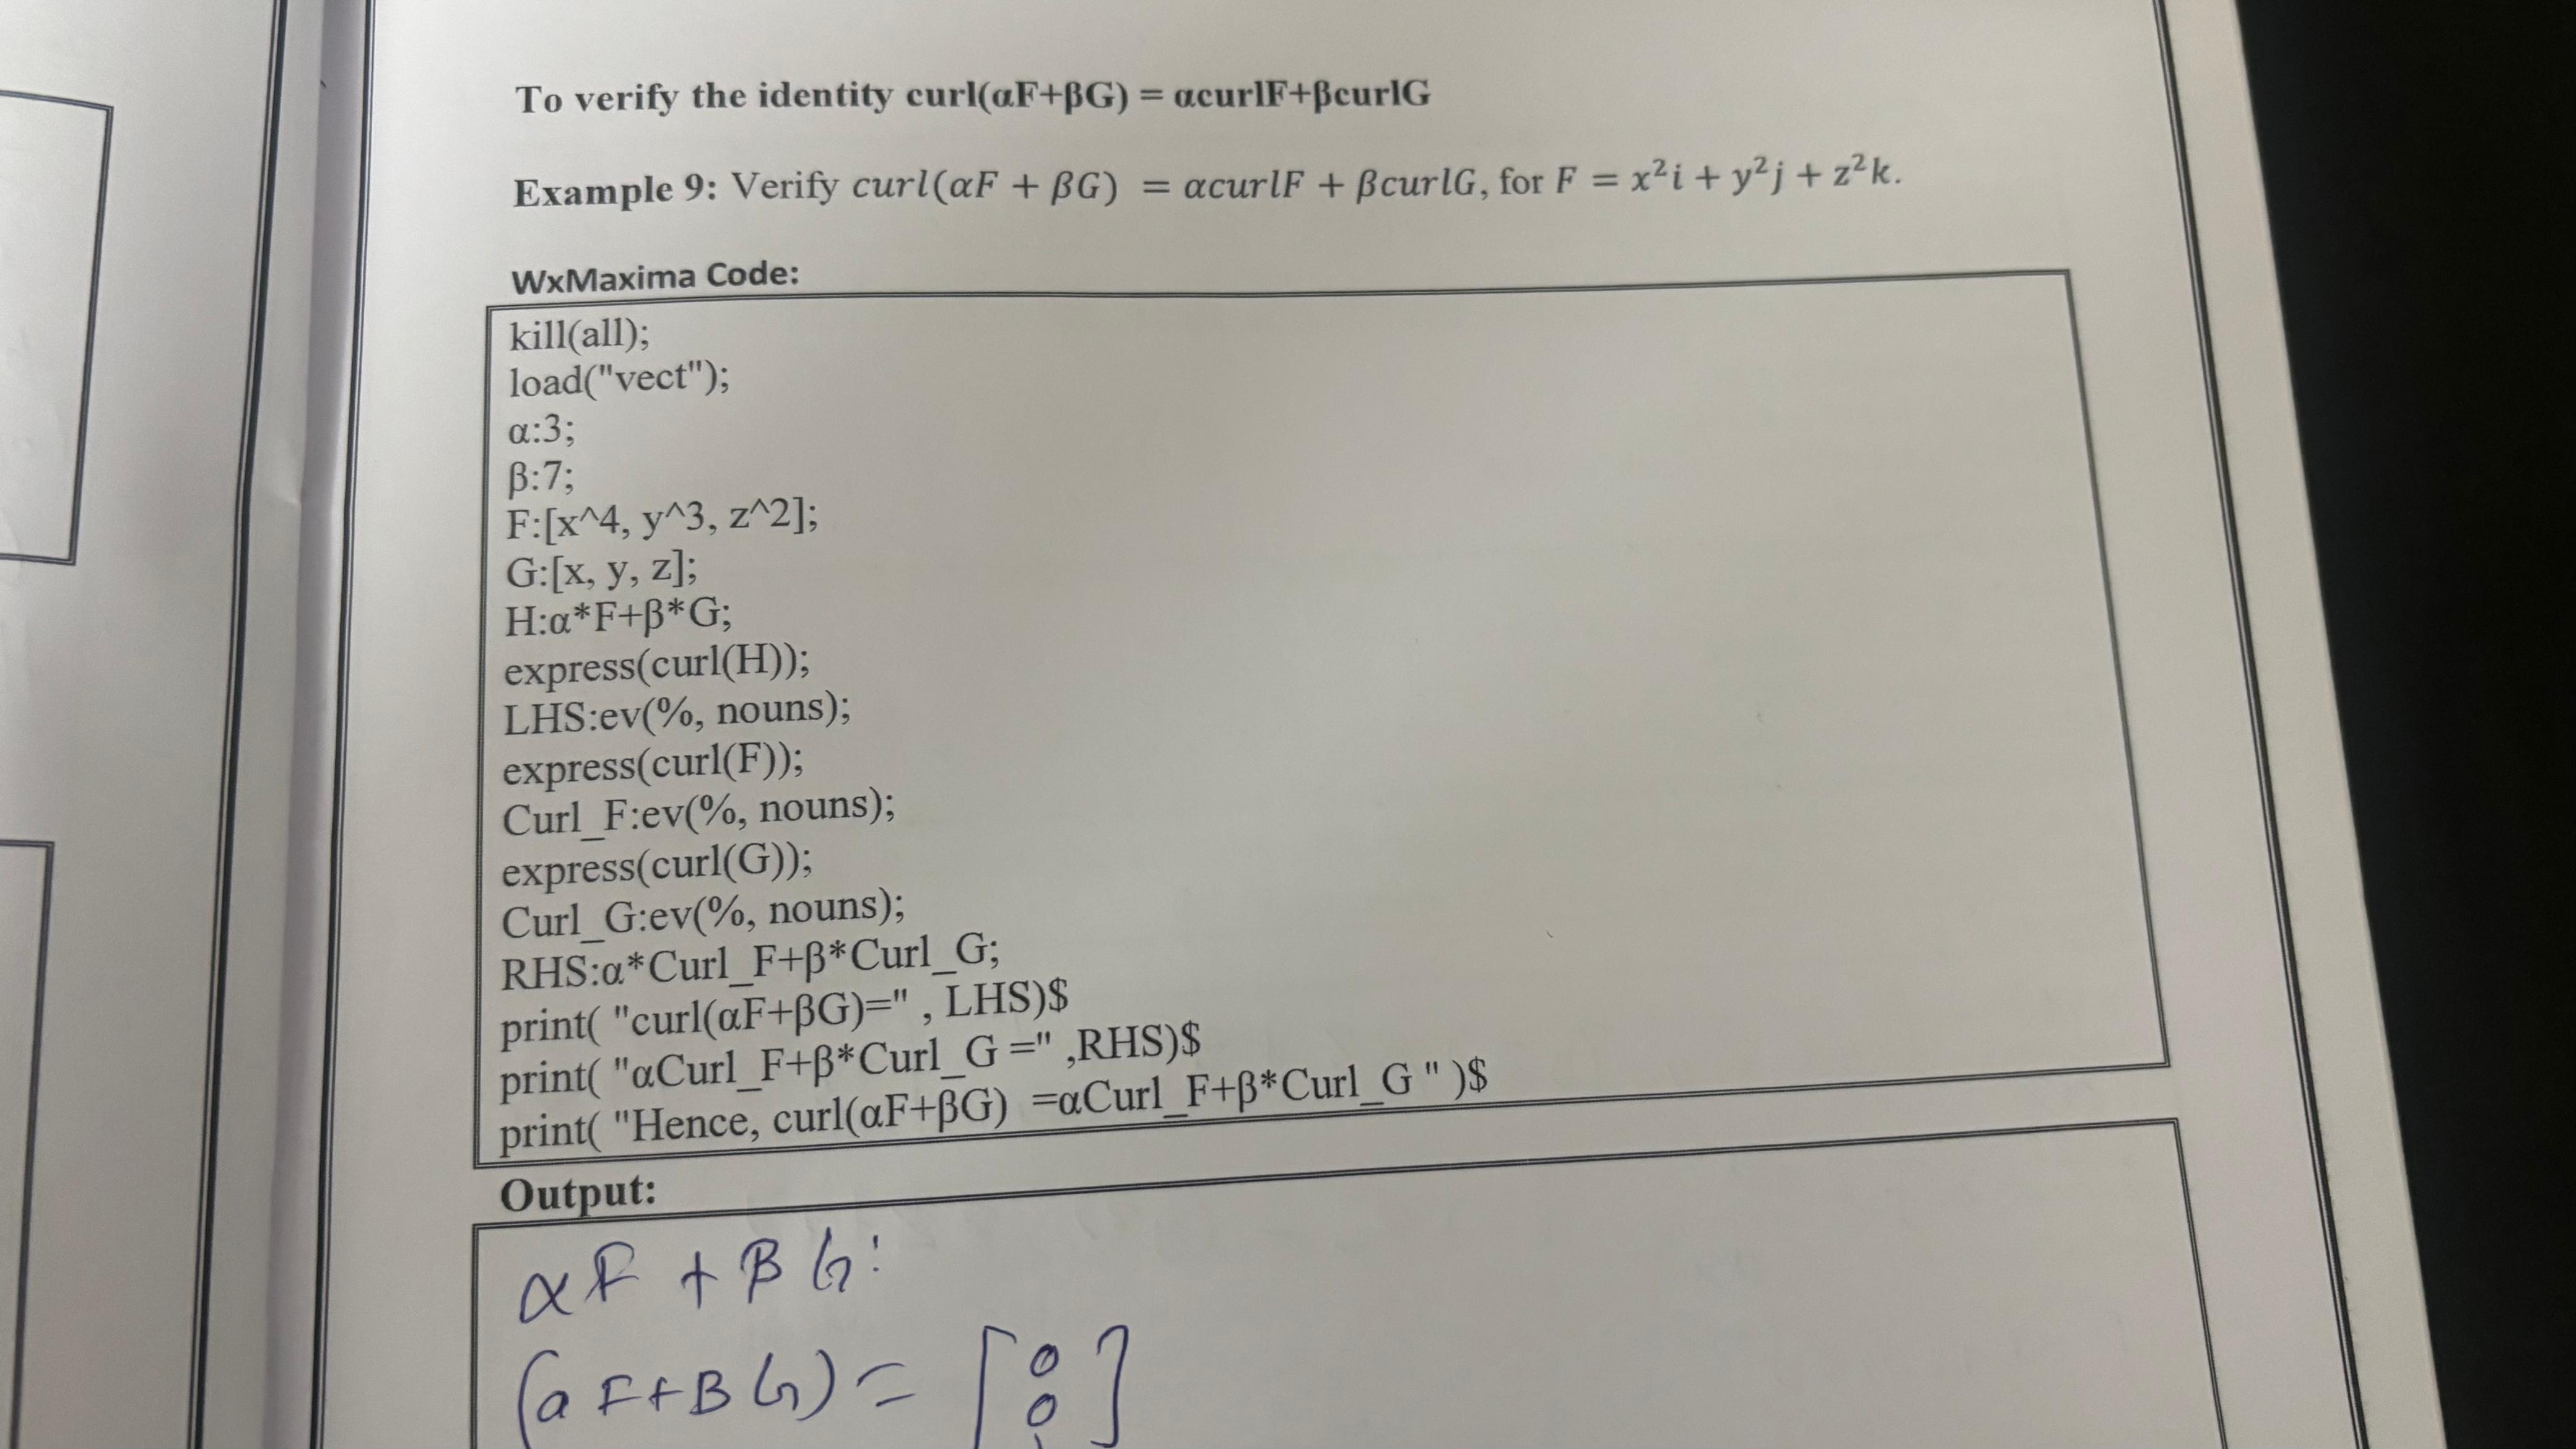 To verify the identity curl(αF+βG) = αcurlF+βcurlG
Example 9: Verify curl(αF + βG) = αcurlF + βcurlG, for F = x²i + y²j + z²k.
WxMaxima Code:
kill(all);
load("vect");
α:3;
β:7;
F:[x^4, y^3, z^2];
G:[x, y, z];
H:α*F+β*G;
express(curl(H));
LHS:ev(%, nouns);
express(curl(F));
Curl_F:ev(%, nouns);
express(curl(G));
Curl_G:ev(%, nouns);
RHS:α*Curl_F+β*Curl_G;
print( "curl(αF+βG)=" , LHS)$
print( "αCurl_F+β*Curl_G =" ,RHS)$
print( "Hence, curl(αF+βG) =αCurl_F+β*Curl_G " )$
Output:
αF + βG:
(aF+BG) = [0
0]